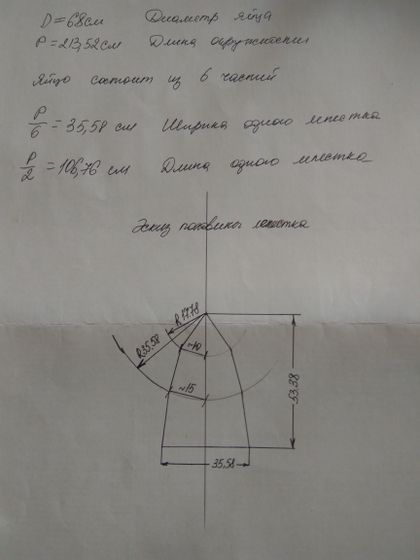 D=68см Диаметр яйца
P=213,52см Длина окружности
Яйцо состоит из 6 частий
P/6=35,58 см Ширина одного лепестка
P/2=106,76 см Длина одного лепестка
Эскиз половины лепестка
R17.78
R35,58
~10
~15
53.38
35,58